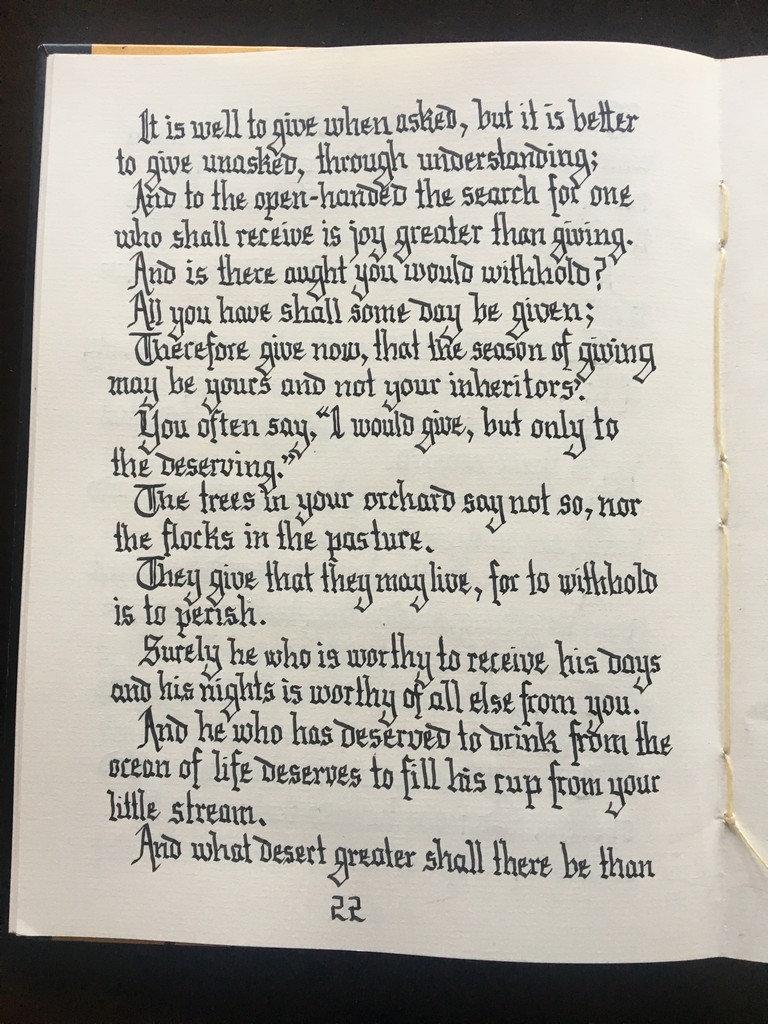 It is well to give when asked, but it is better
to give unasked, through understanding;
And to the open-handed the search for one
who shall receive is joy greater than giving.
And is there aught you would withhold?
All you have shall some day be given;
Therefore give now, that the season of giving
may be yours and not your inheritors'.
You often say, "I would give, but only to
the deserving."
The trees in your orchard say not so, nor
the flocks in the pasture.
They give that they may live, for to withhold
is to perish.
Surely he who is worthy to receive his days
and his nights is worthy of all else from you.
And he who has deserved to drink from the
ocean of life deserves to fill his cup from your
little stream.
And what desert greater shall there be than
22